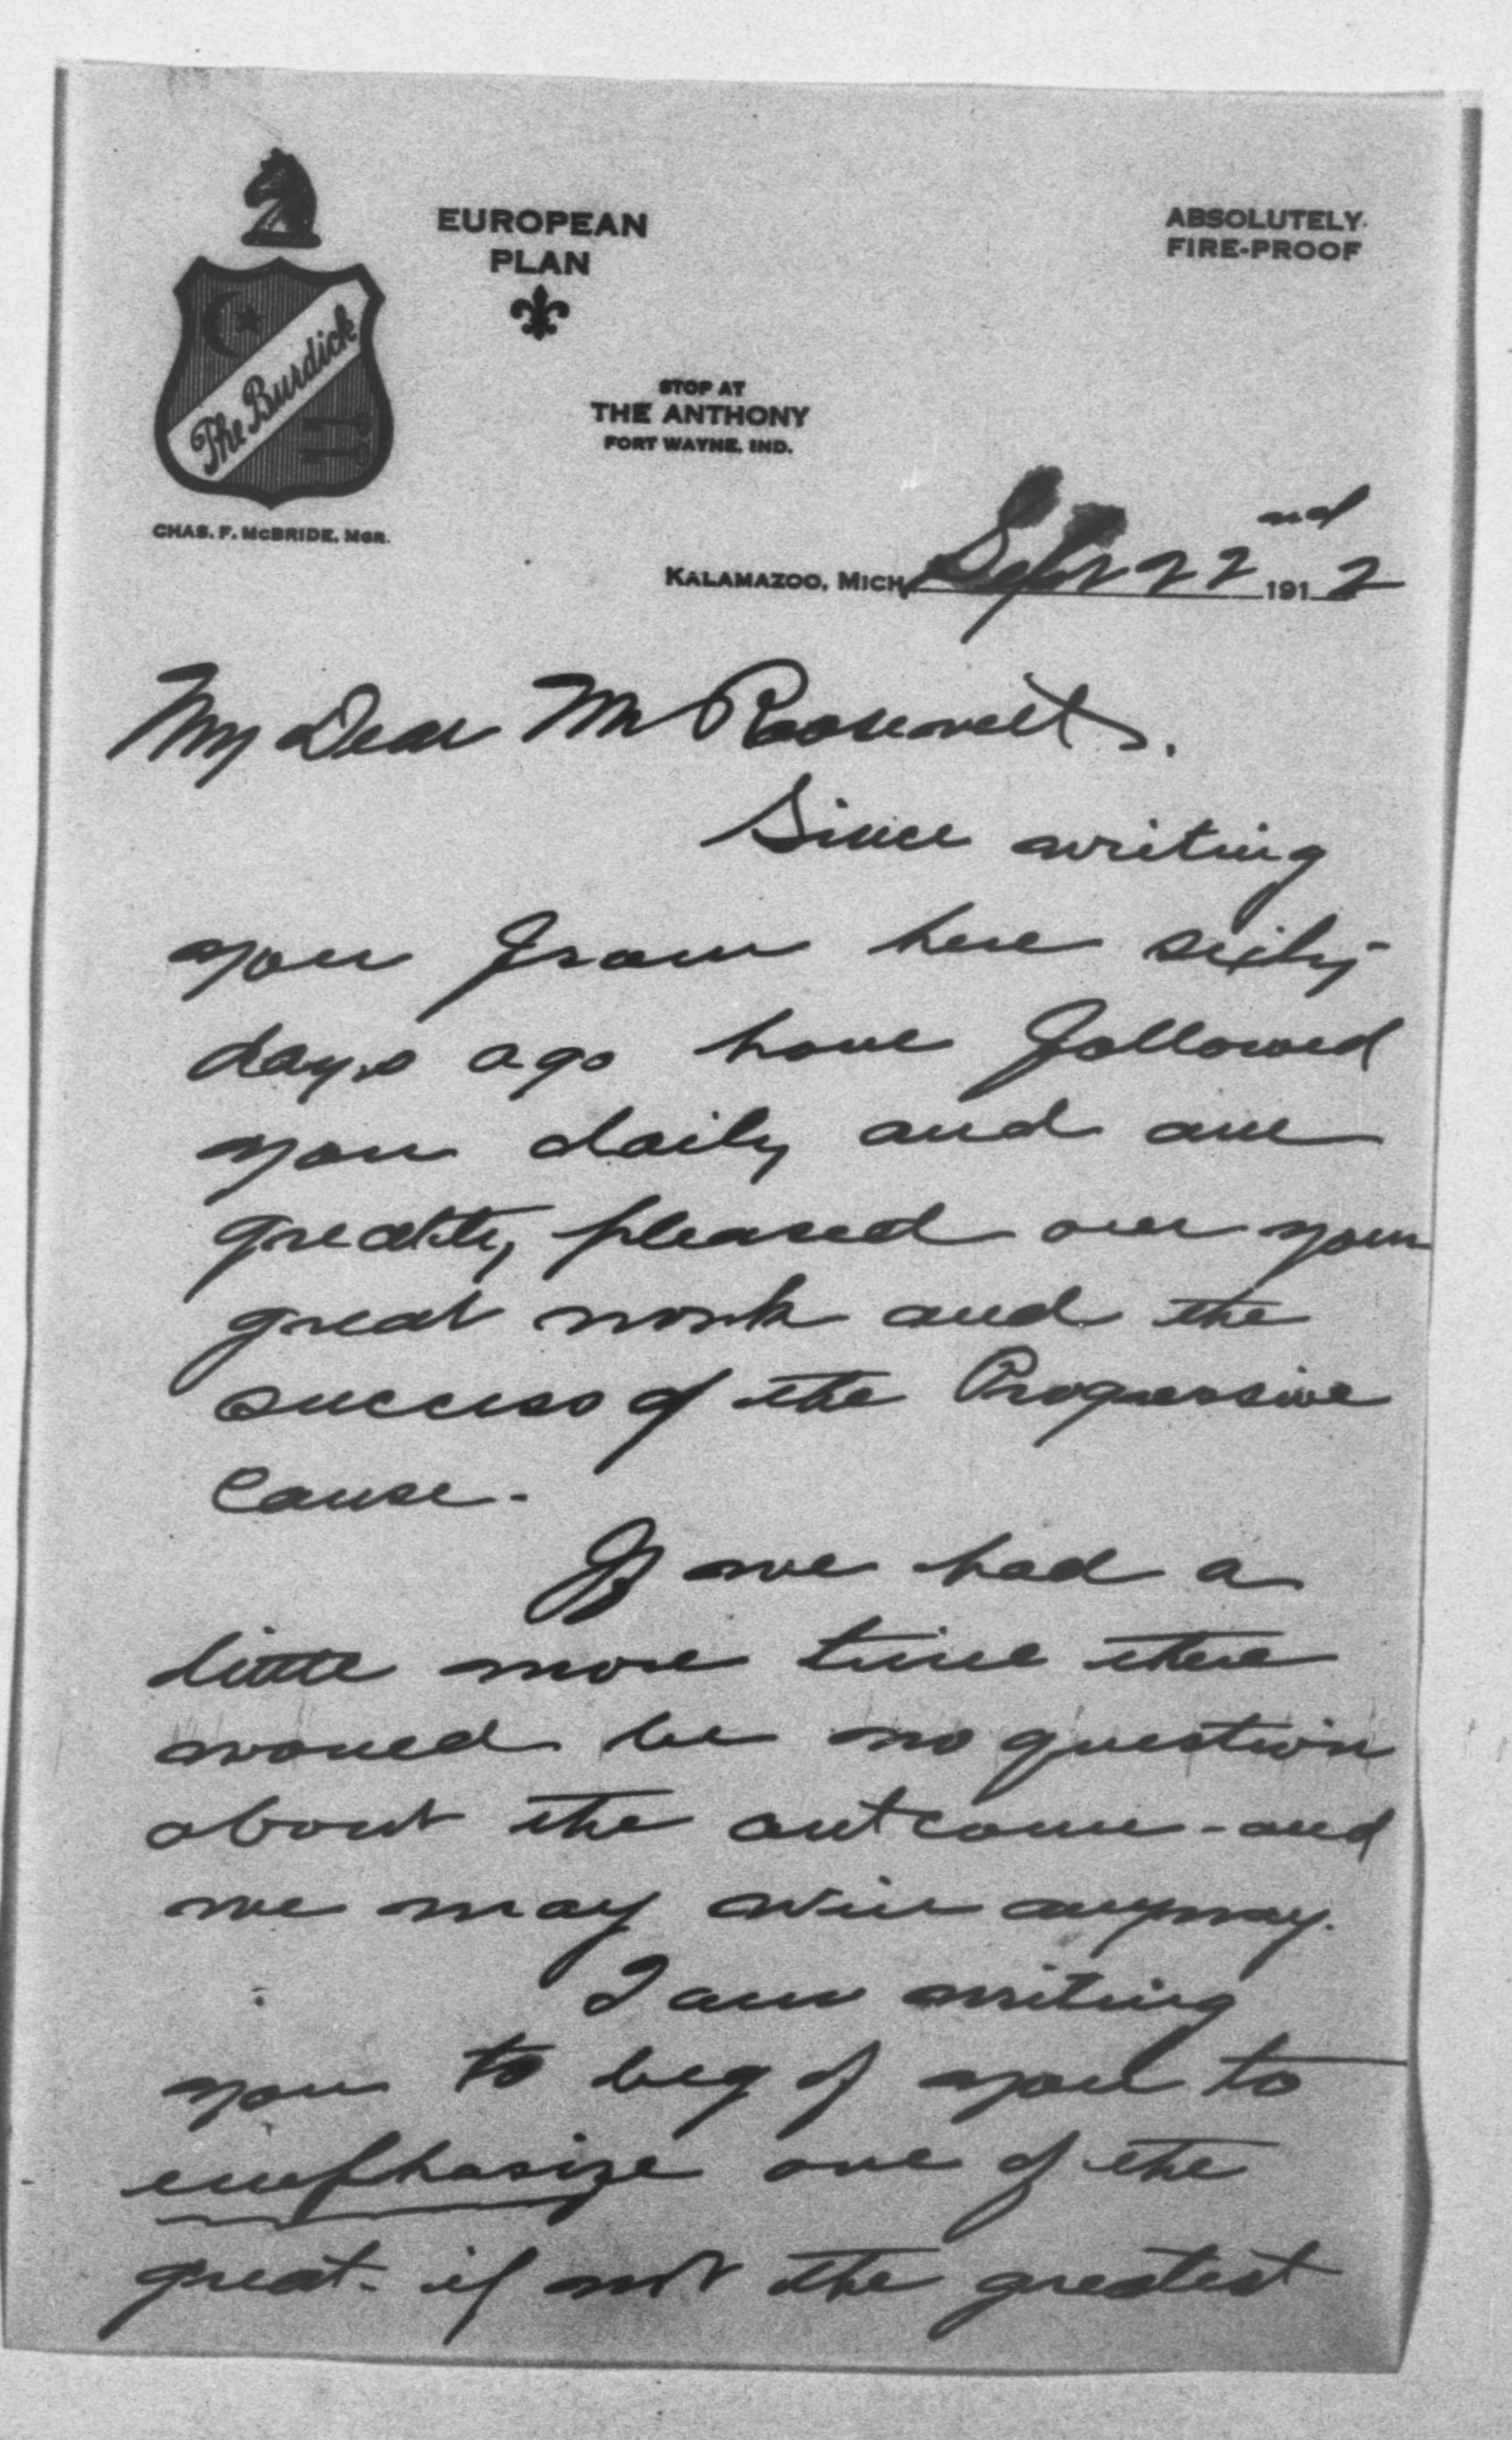 EUROPEAN
PLAN
ABSOLUTELY
FIRE-PROOF
The Burdick
STOP AT
THE ANTHONY
FORT WAYNE, IND.
CHAS. F. McBRIDE, MGR.
KALAMAZOO, MICH Sept 22nd 1912
My Dear Mr Roosevelt,
Since writing
you from here sixty
days ago have followed
you daily and am
greatly pleased over your
great work and the
success of the Progressive
Cause.
If we had a
little more time there
would be no question
about the outcome - and
we may win anyway.
I am writing
you to beg of you to
emphasize one of the
great - if not the greatest